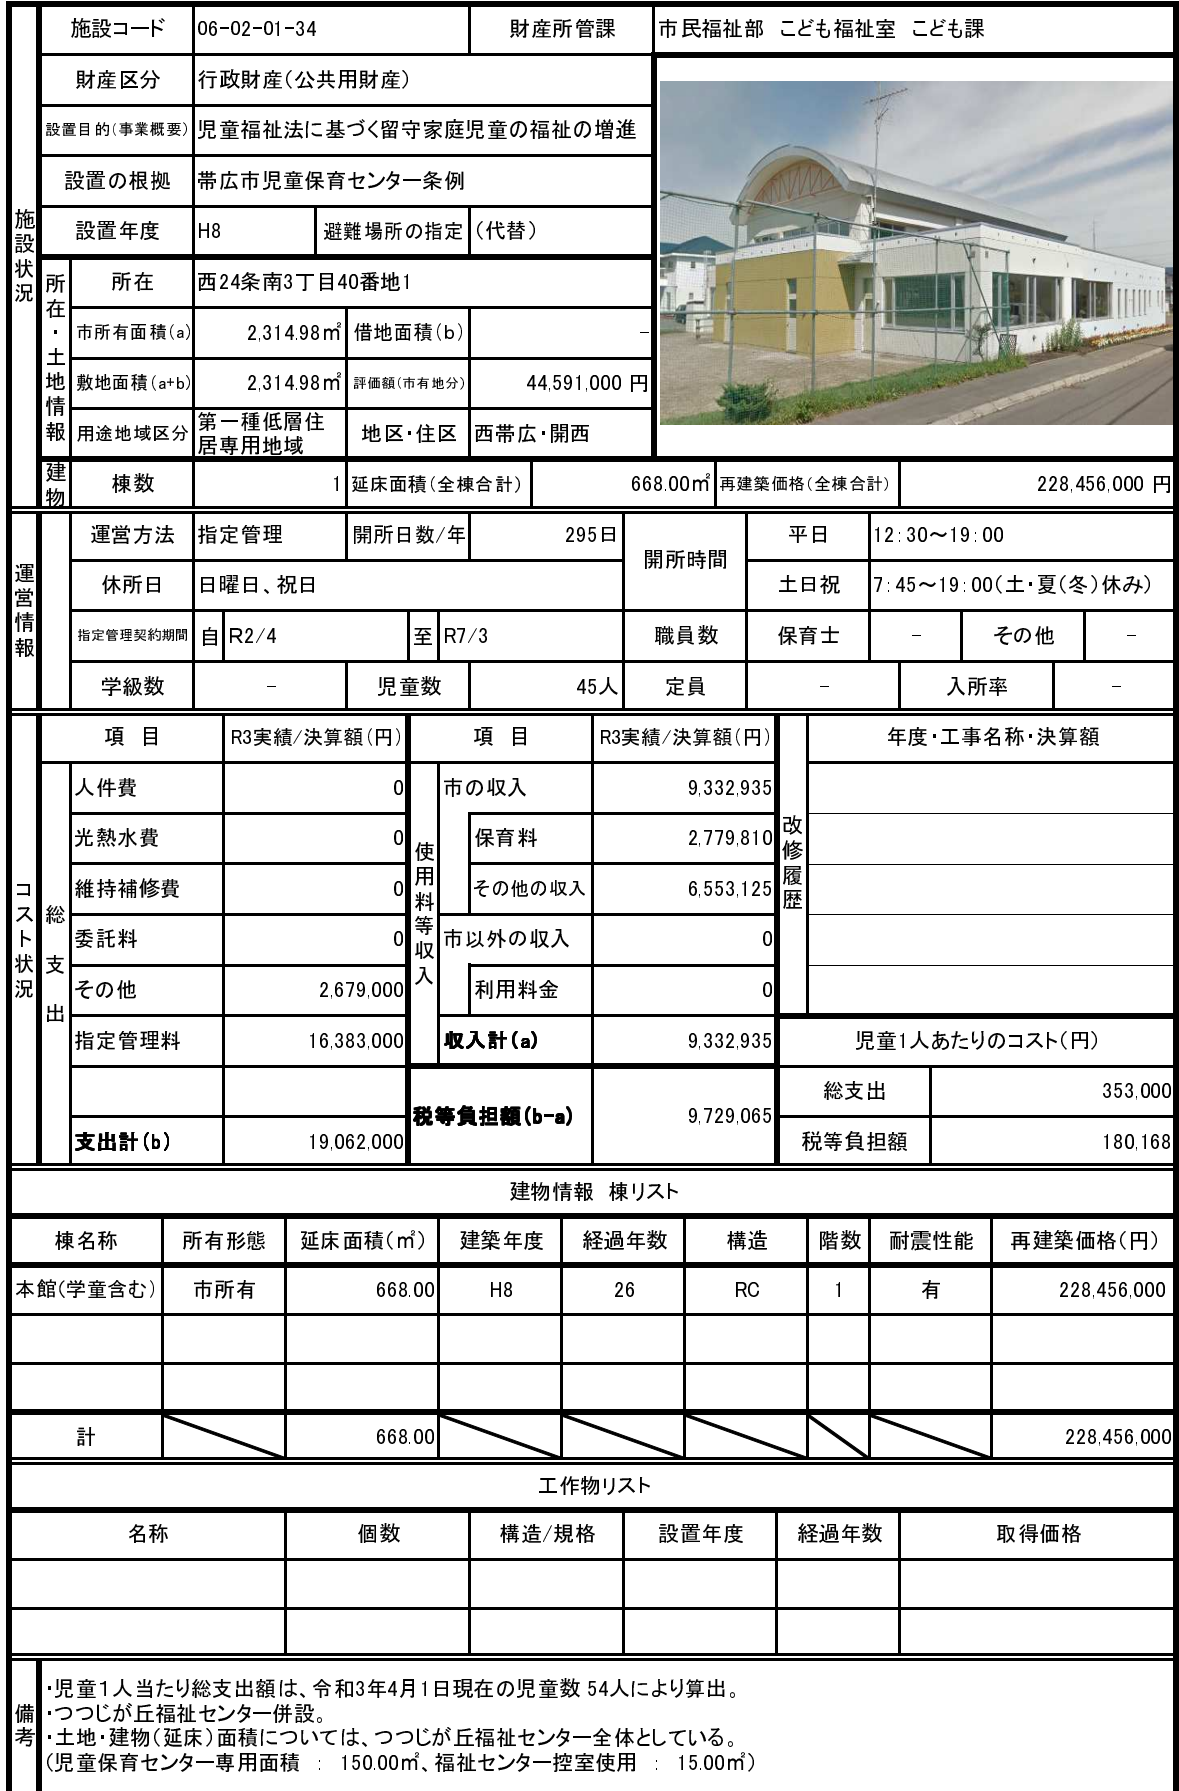 施設状況
施設コード 06-02-01-34 財産所管課 市民福祉部 こども福祉室 こども課
財産区分 行政財産(公共用財産)
設置目的(事業概要) 児童福祉法に基づく留守家庭児童の福祉の増進
設置の根拠 帯広市児童保育センター条例
設置年度 H8 避難場所の指定 (代替)
所在・土地情報
所在 西24条南3丁目40番地1
市所有面積(a) 2,314.98㎡ 借地面積(b) -
敷地面積(a+b) 2,314.98㎡ 評価額(市有地分) 44,591,000 円
用途地域区分 第一種低層住
居専用地域 地区・住区 西帯広・開西
建物 棟数 1 延床面積(全棟合計) 668.00㎡ 再建築価格(全棟合計) 228,456,000 円
運営情報
運営方法 指定管理 開所日数/年 295日 開所時間 平日 12:30～19:00
休所日 日曜日、祝日 土日祝 7:45～19:00(土・夏(冬)休み)
指定管理契約期間 自 R2/4 至 R7/3 職員数 保育士 - その他 -
学級数 - 児童数 45人 定員 - 入所率 -
コスト状況
項 目 R3実績/決算額(円) 項 目 R3実績/決算額(円) 改修履歴 年度・工事名称・決算額
総支出 人件費 0 使用料等収入 市の収入 9,332,935
光熱水費 0 保育料 2,779,810
維持補修費 0 その他の収入 6,553,125
委託料 0 市以外の収入 0
その他 2,679,000 利用料金 0
指定管理料 16,383,000 収入計(a) 9,332,935 児童1人あたりのコスト(円)
総支出 353,000
税等負担額(b-a) 9,729,065
支出計(b) 19,062,000 税等負担額 180,168
建物情報 棟リスト
棟名称 所有形態 延床面積(㎡) 建築年度 経過年数 構造 階数 耐震性能 再建築価格(円)
本館(学童含む) 市所有 668.00 H8 26 RC 1 有 228,456,000
計 668.00 228,456,000
工作物リスト
名称 個数 構造/規格 設置年度 経過年数 取得価格
備考
・児童1人当たり総支出額は、令和3年4月1日現在の児童数 54人により算出。
・つつじが丘福祉センター併設。
・土地・建物(延床)面積については、つつじが丘福祉センター全体としている。
(児童保育センター専用面積 : 150.00㎡、福祉センター控室使用 : 15.00㎡)